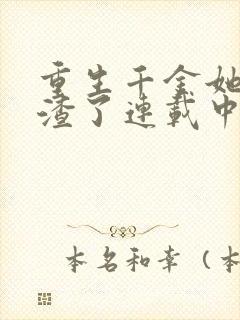 重生千金她
渣了連載中
本名和幸（本